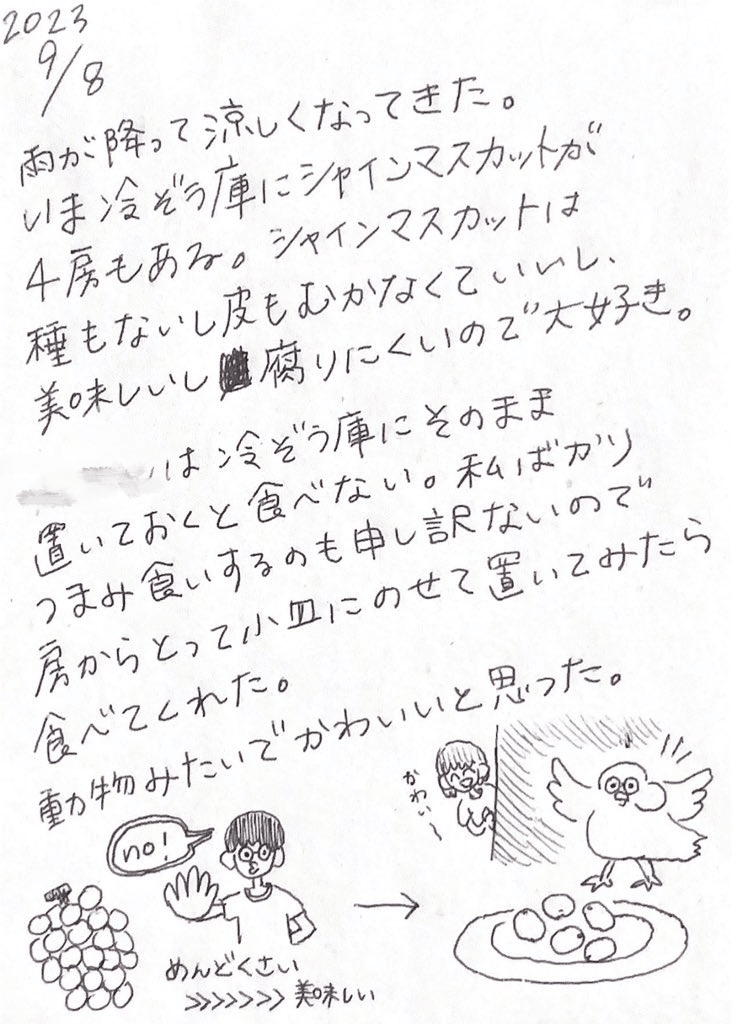 2023
9/8
雨が降って涼しくなってきた。
いま冷ぞう庫にシャインマスカットが
4房もある。シャインマスカットは
種もないし皮もむかなくていいし、
美味しいし腐りにくいので大好き。
は冷ぞう庫にそのまま
置いておくと食べない。私ばかり
つまみ食いするのも申し訳ないので
房からとって小皿にのせて置いてみたら
食べてくれた。
動物みたいでかわいいと思った。
かわい〜
no!
めんどくさい
>>>>>>> 美味しい